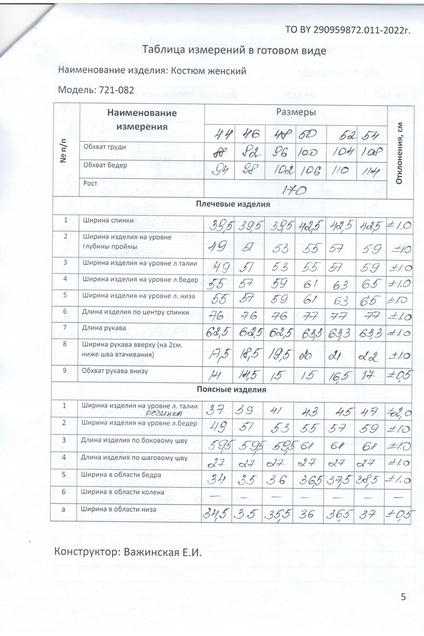 ТО BY 290959872.011-2022г.
Таблица измерений в готовом виде
Наименование изделия: Костюм женский
Модель: 721-082
№ п/п Наименование измерения Размеры Отклонения, см
44 46 48 50 52 54
Обхват груди 88 92 96 100 104 108
Обхват бедер 94 98 102 106 110 114
Рост 170
Плечевые изделия
1 Ширина спинки 39,5 39,5 39,5 42,5 42,5 42,5 ±1.0
2 Ширина изделия на уровне глубины проймы 49 51 53 55 57 59 ±1.0
3 Ширина изделия на уровне л.талии 49 51 53 55 57 59 ±1.0
4 Ширина изделия на уровне л.бедер 55 57 59 61 63 65 ±1.0
5 Ширина изделия на уровне л. низа 55 57 59 61 63 65 ±1.0
6 Длина изделия по центру спинки 76 76 76 77 77 77 ±1.0
7 Длина рукава 62,5 62,5 62,5 63,3 63,3 63,3 ±1.0
8 Ширина рукава вверху (на 2см. ниже шва втачивания) 17,5 18,5 19,5 20 21 22 ±1.0
9 Обхват рукава внизу 14 14,5 15 15 16,5 17 ±0,5
Поясные изделия
1 Ширина изделия на уровне л. талии резинка 37 39 41 43 45 47 ±2,0
2 Ширина изделия на уровне л.бедер 49 51 53 55 57 59 ±1.0
3 Длина изделия по боковому шву 59,5 59,5 59,5 61 61 61 ±1.0
4 Длина изделия по шаговому шву 27 27 27 27 27 27 ±1.0
5 Ширина в области бедра 34 35 36 36,5 37,5 38,5 ±1.0
6 Ширина в области колена — — — — — — —
а Ширина в области низа 34,5 35 35,5 36 36,5 37 ±0,5
Конструктор: Важинская Е.И.
5